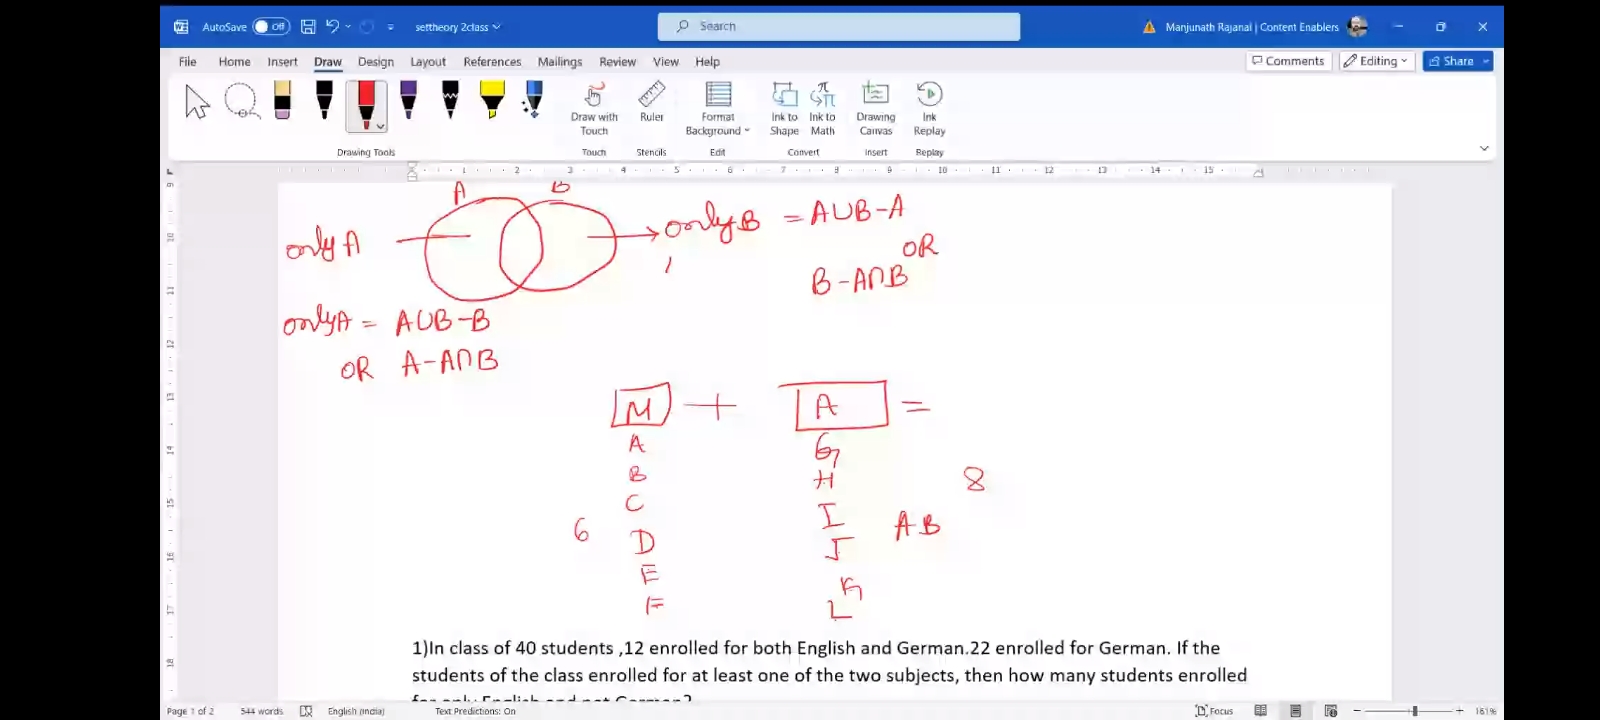 AutoSave Off settheory 2class Search Manjunath Rajanal | Content Enablers
File Home Insert Draw Design Layout References Mailings Review View Help Comments Editing Share
Draw with Touch Ruler Format Background Ink to Shape Ink to Math Drawing Canvas Ink Replay
Drawing Tools Touch Stencils Edit Convert Insert Replay
1 2 3 4 5 6 7 8 9 10 11 12 13 14 15
9
10
11
12
13
14
15
16
17
18
A B
only A only B = A∪B-A
OR
B-A∩B
only A = A∪B-B
OR A-A∩B
M + A =
A G
B H 8
C I
6 D J A B
E K
F L
1)In class of 40 students ,12 enrolled for both English and German.22 enrolled for German. If the
students of the class enrolled for at least one of the two subjects, then how many students enrolled
for only English and not German?
Page 1 of 2 544 words English (India) Text Predictions: On Focus 161%